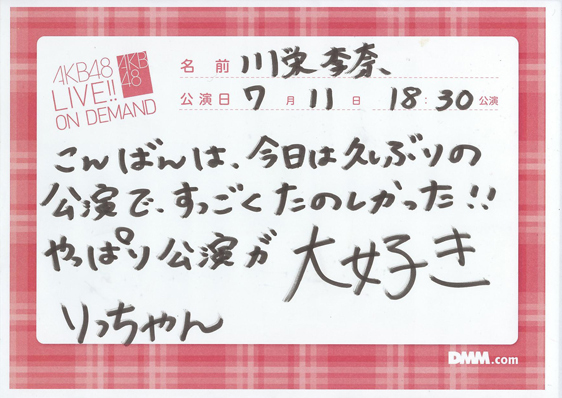 AKB48
LIVE!!
ON DEMAND
AKB
48
名前 川栄李奈、
公演日 7月11日 18:30公演
こんばんは、今日は久しぶりの
公演で、すっごくたのしかった!!
やっぱり公演が 大好き
りっちゃん
DMM.com